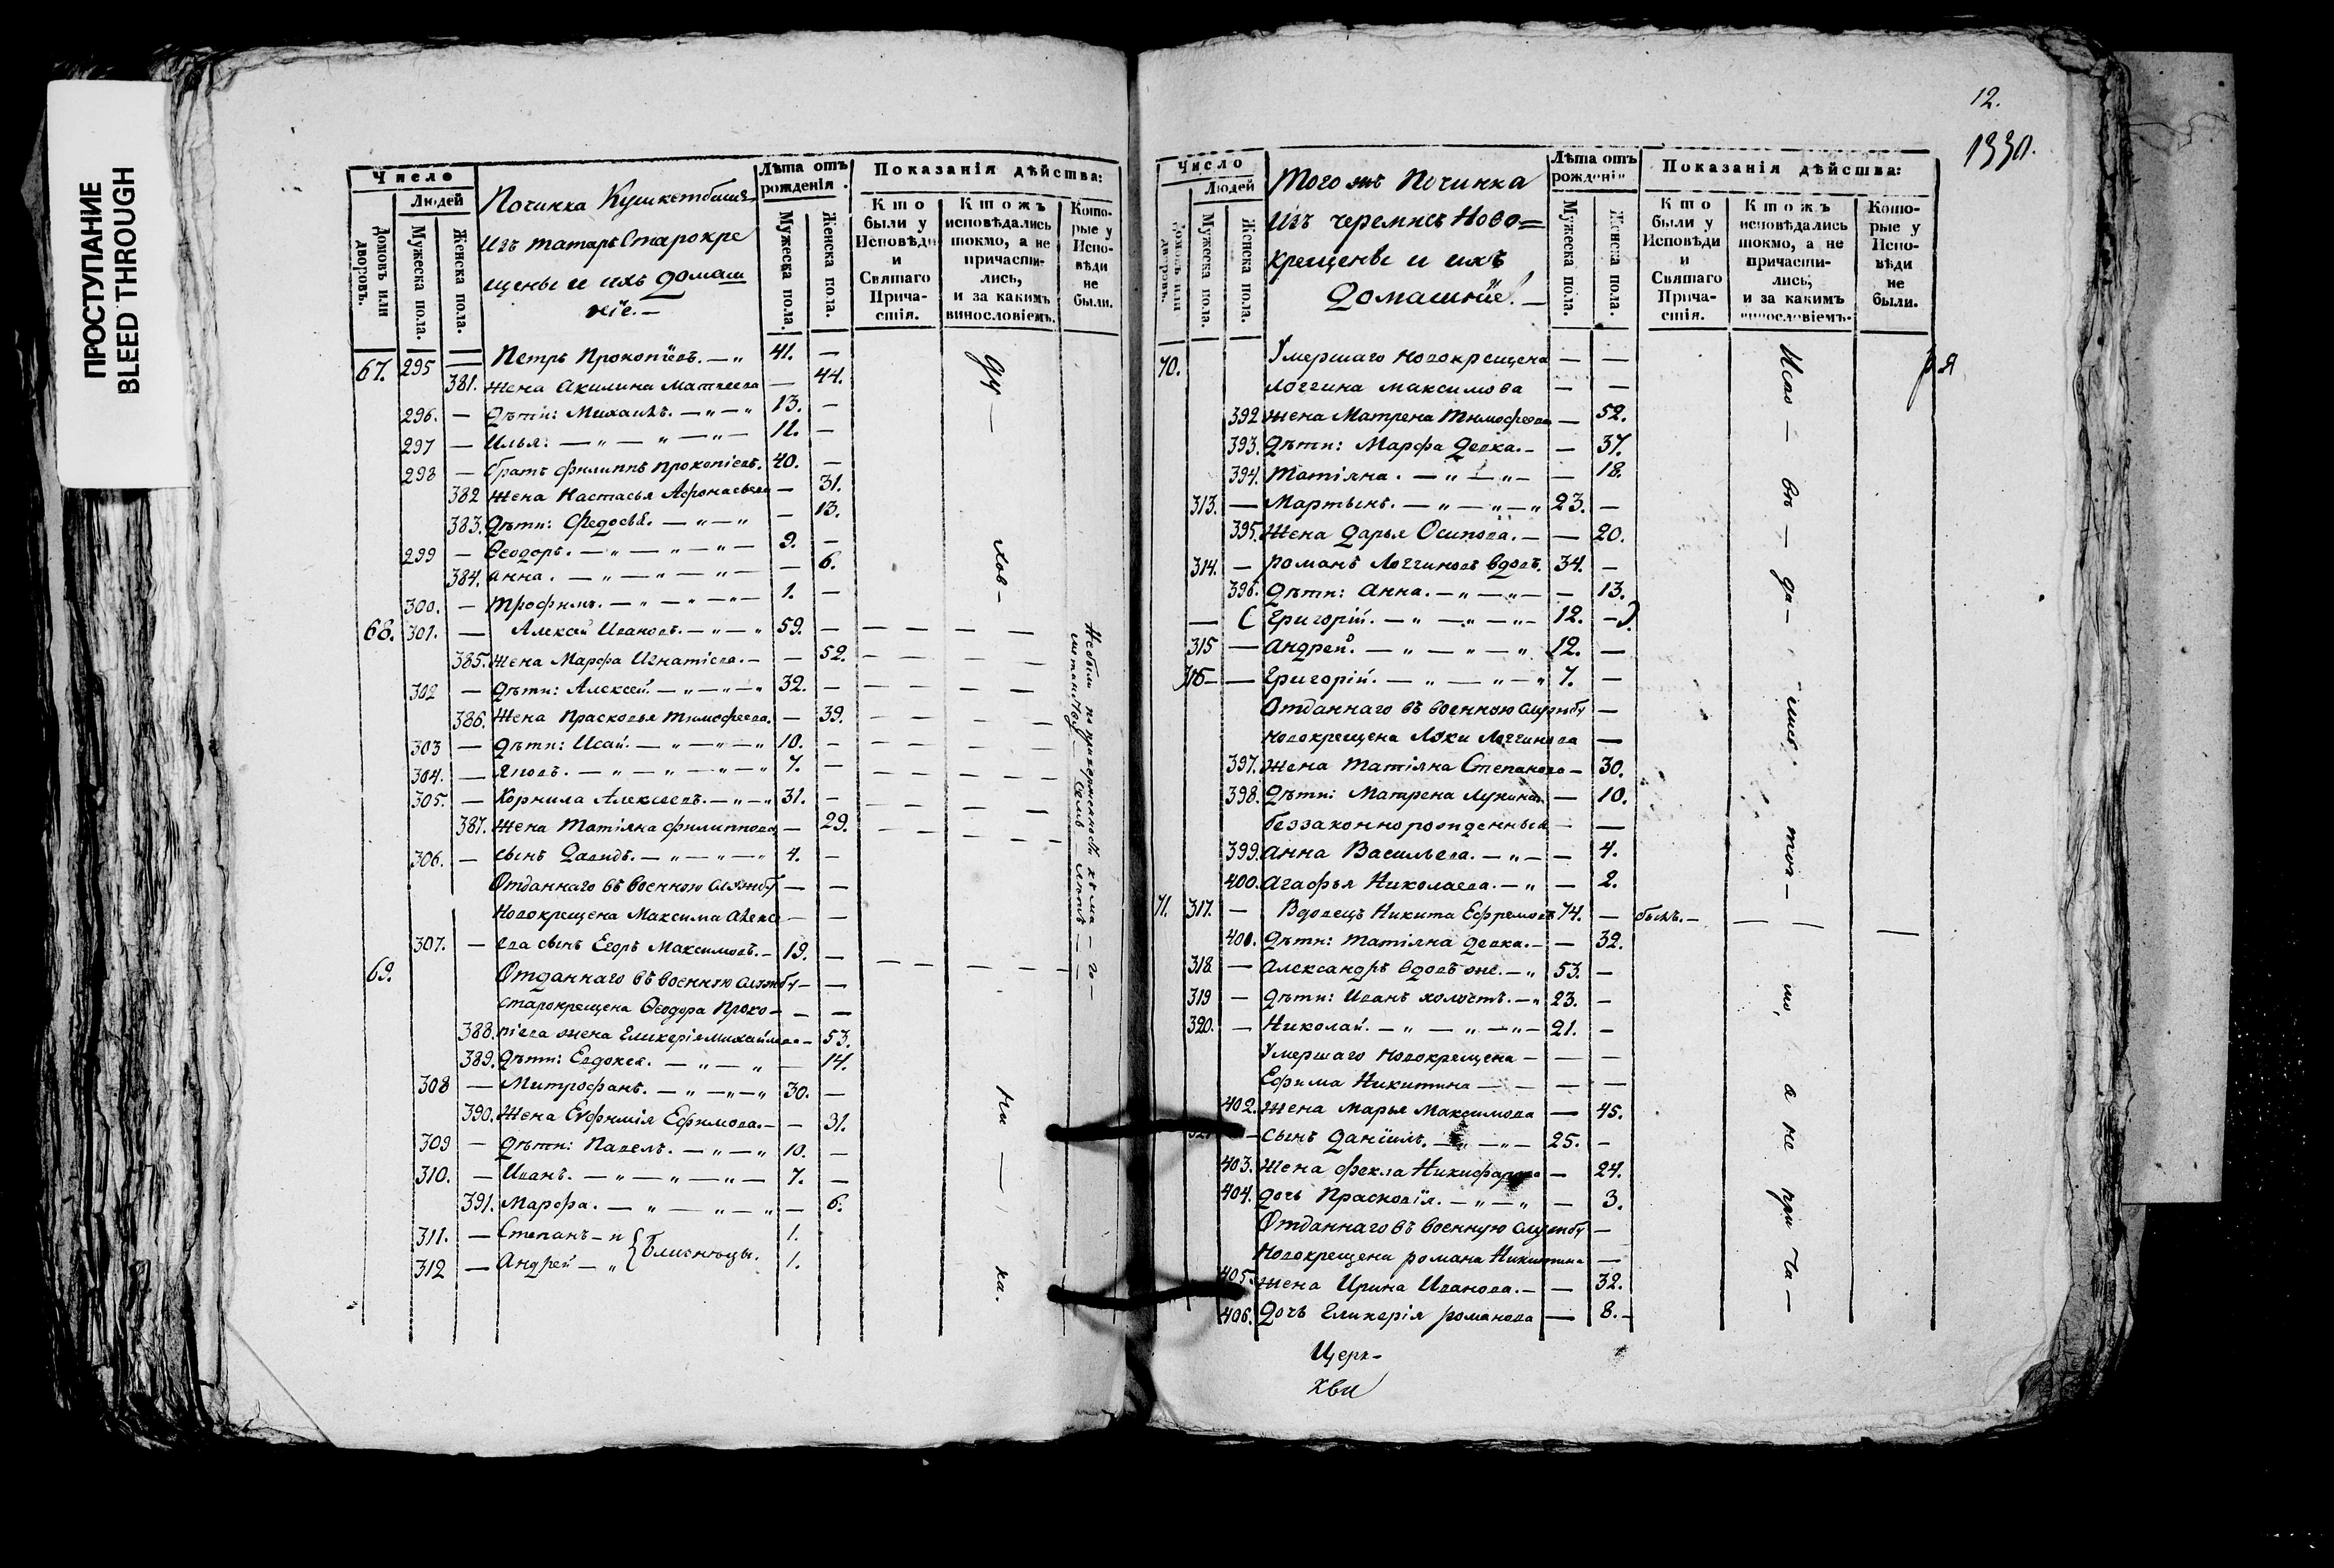 ПРОСТУПАНИЕ
BLEED THROUGH
Число
Людей
Домовъ или дворовъ.
Мужеска пола.
Женска пола.
Починка
Изъ татаръ Старокре
щены и ихъ домаш
ніе. —
Лѣта отъ рожденія.
Мужеска пола.
Женска пола.
Показанія дѣйства:
Кто были у Исповѣди и Святаго Прича-стія.
Ктожъ исповѣдались токмо, а не причасти-лись, и за какимъ винословіемъ.
Кото-рые у Испо-вѣди не были.
67. 295 — Петръ Прокопіевъ. — „ 41. —
381. Жена Акилина Матвеева — 44.
296. — Дѣти: Михаилъ. — „ — „ — 13. —
297 — Илья: — „ — „ — „ — —
298 — братъ Филиппъ Прокопіевъ. 40. —
382 Жена Настасья Афонасьева — 31.
383. Дѣти: Федосья. — „ — „ — 13.
299 — Ѳеодоръ. — „ — „ — „ — 9. —
384. Анна. — „ — „ — „ — — 6.
300. — Трофимъ. — „ — „ — „ — 1. —
68. 301. — Алексей Ивановъ. — „ — „ 59. —
385. Жена Марфа Игнатіева. — — 52.
302 — Дѣти: Алексей. — „ — „ — „ 32. —
386. Жена Прасковья Тимофеева. — 39.
303 — Дѣти: Исай. — „ — „ — „ 10. —
304. — Яковъ. — „ — „ — „ — „ 7. —
305. — Корнила Алексеевъ. — „ — „ 31. —
387. Жена Татіяна Филиппова — 29.
306. — сынъ Давидъ. — „ — „ — „ 4. —
Отданнаго въ военною службу — —
новокрещена Максима Алексе — —
307. — ева сынъ Егоръ Максимовъ. — 19. —
69. Отданнаго въ военную службу — —
старокрещена Ѳеодора Проко — — —
388. піева жена Гликерія Михайлова — 53.
389. Дѣти: Евдокея. — „ — „ — 14.
308 — Митрофанъ. — „ — „ — „ 30. —
390. Жена Евфимія Ефимова. — — 31.
309 — Дѣти: Павелъ. — „ — „ 10. —
310. — Иванъ. — „ — „ — „ — 7. —
391. Марфа. — „ — „ — „ — 6.
311. — Степанъ — и 1.
близнецы.
312 — Андрей — „ 1.
ду — хов — ни — ка.
12.
1330.
Число
Людей
Домовъ или дворовъ.
Мужеска пола.
Женска пола.
Того жъ Починка
изъ черемисъ Ново=
крещены и ихъ
Домашніе. —
Лѣта отъ рожденія
Мужеска пола.
Женска пола.
Показанія дѣйства:
Кто были у Исповѣди и Святаго Прича-стія.
Ктожъ исповѣдались токмо, а не причасти-лись, и за какимъ винословіемъ.
Кото-рые у Испо-вѣди не были.
70. Умершаго новокрещена — —
Логгина Максимова — —
392 жена Матрена Тимофеева — 52.
393. Дѣти: Марфа девка. — — 37.
394. Татіяна. — „ — „ — — 18.
313. — Мартынъ. — „ — „ — „ 23. —
395. Жена Дарья Осипова. — — 20.
314. — Романъ Логгиновъ вдовъ. 34. —
396. Дѣти: Анна. — „ — „ — — 13.
— ( Григорій. — „ — „ — „ — 12. — ).
315 — Андрей. — „ — „ — „ 12. —
316 — Григорій. — „ — „ — „ 7. —
Отданнаго въ военною службу —
новокрещена Луки Логгинова —
397. жена Татіяна Степанова — 30.
398. Дѣти: Матрена Лукина — 10.
беззаконнорожденныя — —
399. Анна Васильева. — „ — — 4.
400. Агафья Николаева. — „ — 2.
71. 317. — Вдовецъ Никита Ефремовъ 74. — былъ. —
401. Дѣти: Татіяна девка. — — 32.
318 — Александръ вдовъ же. — „ 53. —
319 — Дѣти: Иванъ холостъ. — „ 23. —
320. — Николай. — „ — „ — „ — 21. —
Умершаго новокрещена — — —
Ефима Никитина — — — —
402. Жена Марья Максимова — 45.
321 — сынъ Даніилъ. — „ — „ — 25. —
403. Жена Фекла Никифорова — 24.
404. дочь Прасковія. — „ — „ — 3.
Отданнаго въ военную службу —
новокрещена Романа Никитина —
405. жена Ирина Иванова. — — 32.
406. Дочь Гликерія Романова — 8. —
Испо — вѣ — да — лись, ток — мо, а не при ча — ся
Церк-
кви